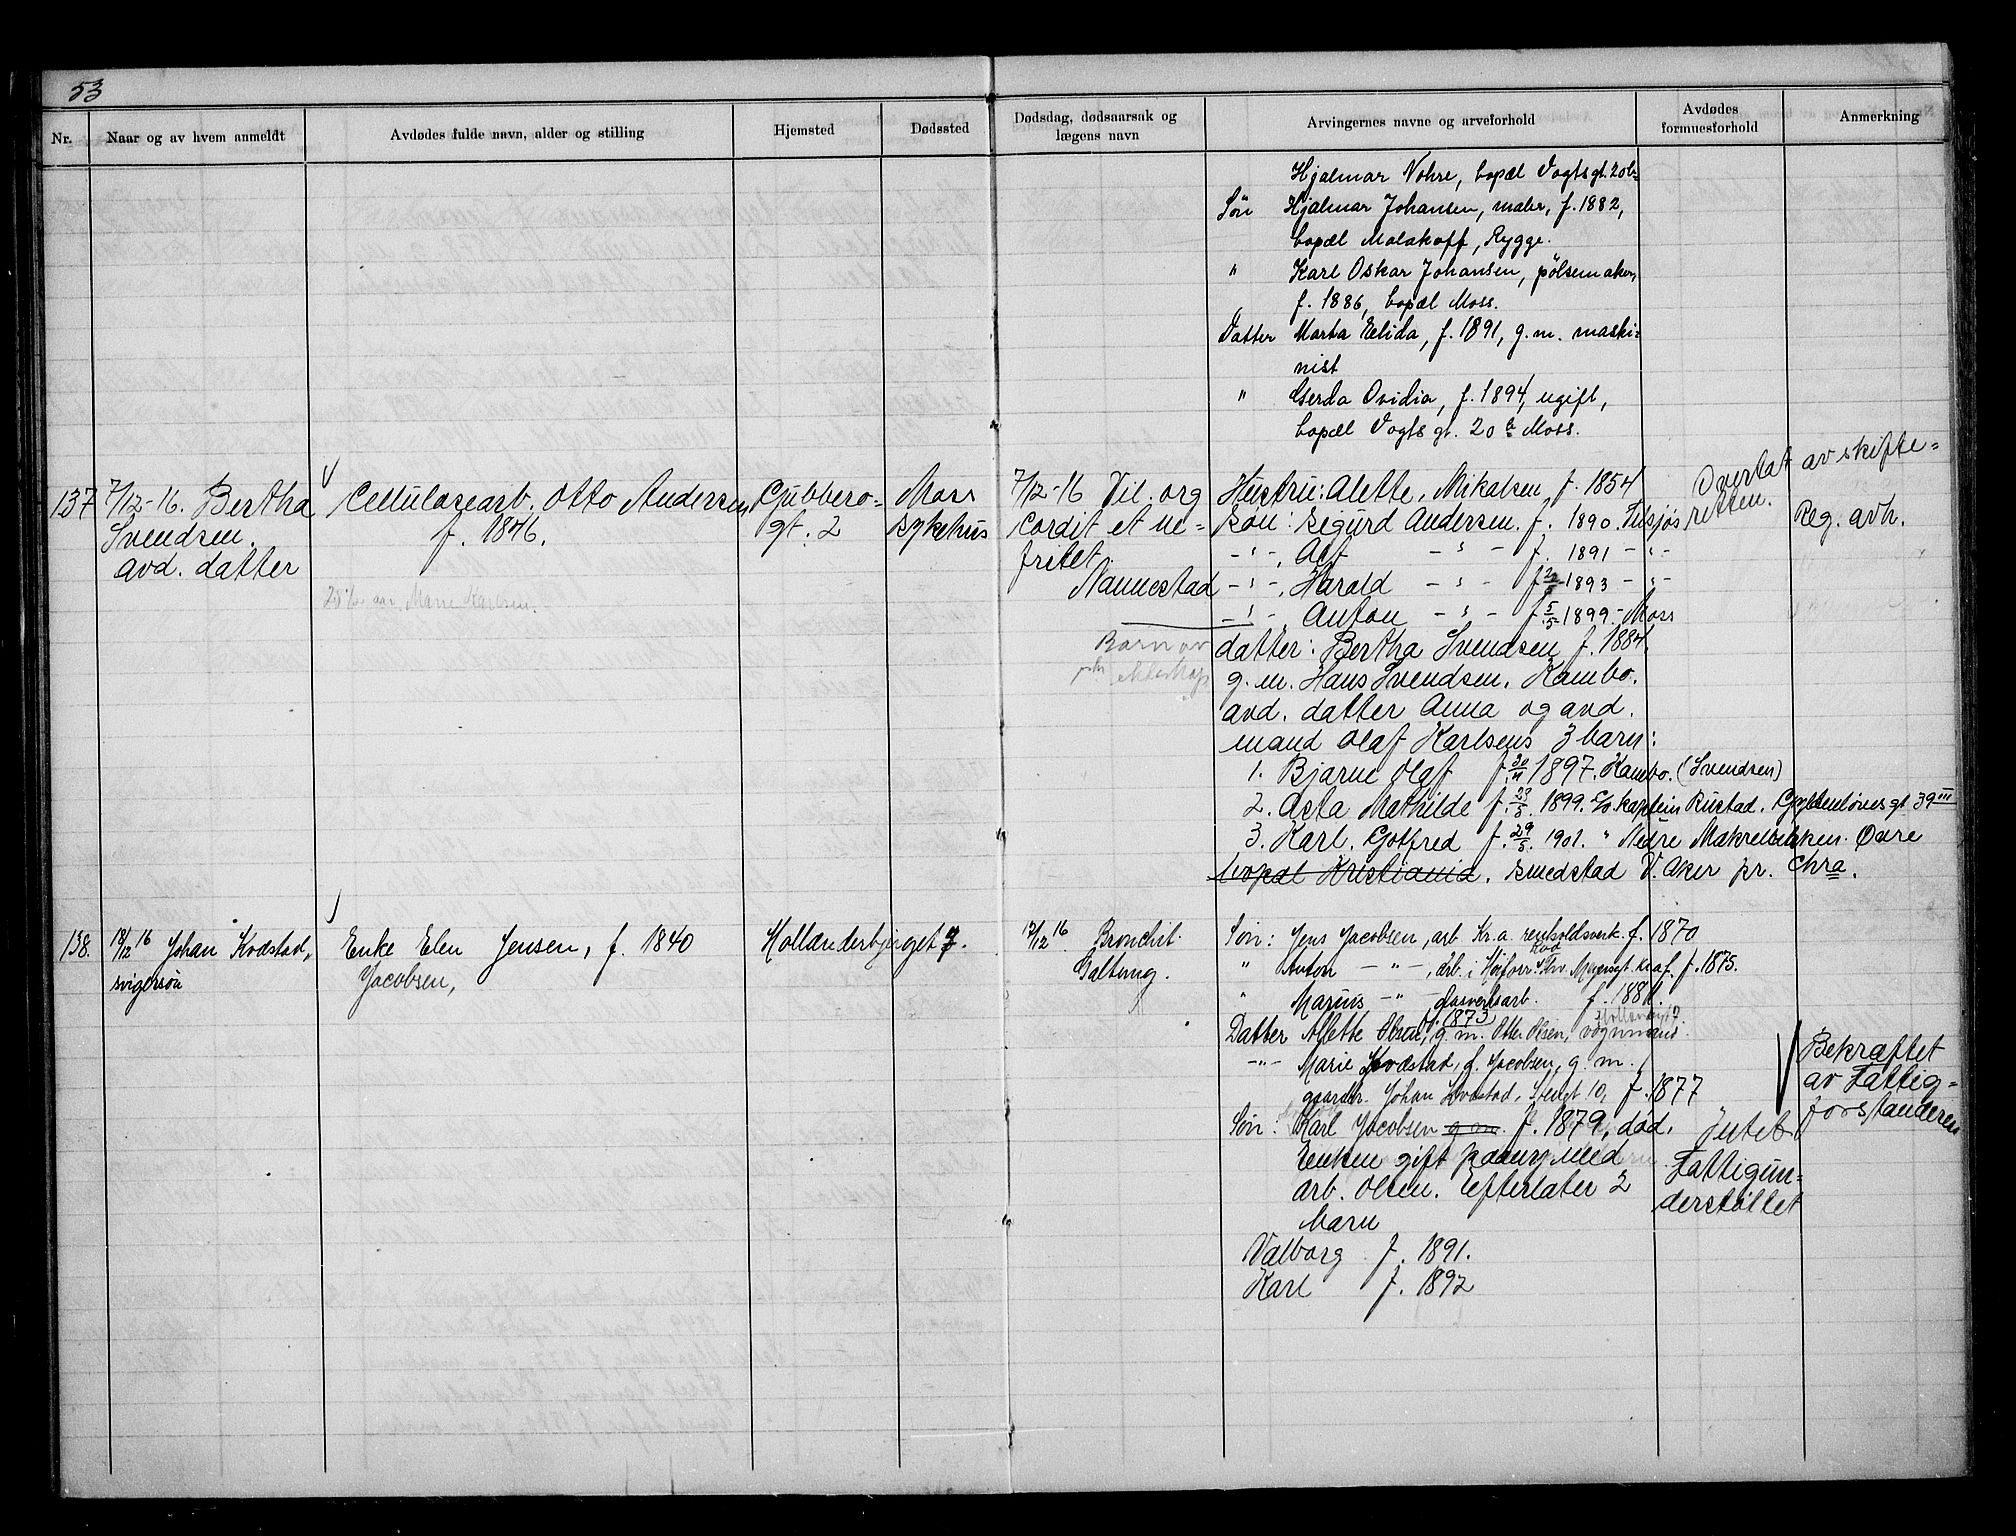 53
Nr.
Naar og av hvem anmeldt
Avdødes fulde navn, alder og stilling
Hjemsted
Dødssted
Dødsdag, dødsaarsak og
lægens navn
Arvingernes navne og arveforhold
Avdødes
formuesforhold
Anmerkning
Hjalmar Nohre, bopæl Vogtsgt. 20b
Søn Hjalmar Johansen, maler, f. 1882,
bopæl Malakoff, Rygge.
" Karl Oskar Johansen, pølsemaker,
f. 1886, bopæl Moss.
Datter Marta Elida, f. 1891, g. m. maski-
nist
" Gerda Ovidia, f. 1894, ugift,
bopæl Vogts gt. 20 b Moss.
137
7/12-16. Bertha
Svendsen.
avd. datter
Cellulosearb. Otto Andersen
f. 1846.
Marie Karlsen.
Gubbero-
gt. 2
Moss
sykehus
7/12-16 Vit. org
cordit et ne-
fritet
Nannestad
Hustru: Alette, Mikalsen f. 1854
søn: Sigurd Andersen. f. 1890. Tilsjøs
-"- , Alf -"- f. 1891 -"-
-"- , Harald -"- f. 22/5 1893 -"-
-"- , Anton -"- f. 5/5 1899 - Moss
Barn av
ekteskap
datter: Bertha Svendsen f. 1884.
g. m. Hans Svendsen. Kambo.
avd. datter Anna og avd.
mand Olaf Karlsens 3 barn:
1. Bjarne Olaf f. 20/11 1897. Kambo. (Svendsen)
2. Asta Mathilde f. 23/5. 1899. c/o kaptein Rustad. Gyldenløvesgt 39 III
3. Karl. Gotfred f. 29/5. 1901. " Nedre Makrelbekken. Øvre
bopæl Kristiania. Smedstad V. Aker pr. Chra.
Overlat av skifte-
retten.
Reg. avh.
138.
18/12 16 Johan Kvæstad,
svigersøn
Enke Elen Jensen, f. 1840
Jacobsen,
Hollænderbjerget 7.
17/12 16 Bronchit.
Galtung.
Søn: Jens Jacobsen, arb. Kr.a. renholdsverk. f. 1870
" Anton -"- , arb. i f. 1875.
" Marius -"- glasverksarb. f. 1881.
f. 1873
Datter Alette Olsen, g. m. Otto Olsen, vognmand.
-"- Marie Kvæstad, f. Jacobsen, g. m.
gaardbr. Johan Kvæstad, 10, f. 1877
Søn: Karl Jacobsen g. m. f. 1879, død.
Enken gift paany med
arb. Olsen. Efterlater 2
barn
Valborg f. 1891.
Karl f. 1892
Intet
Fattigun-
derstøttet
Bekræftet
av Fattig-
forstanderen